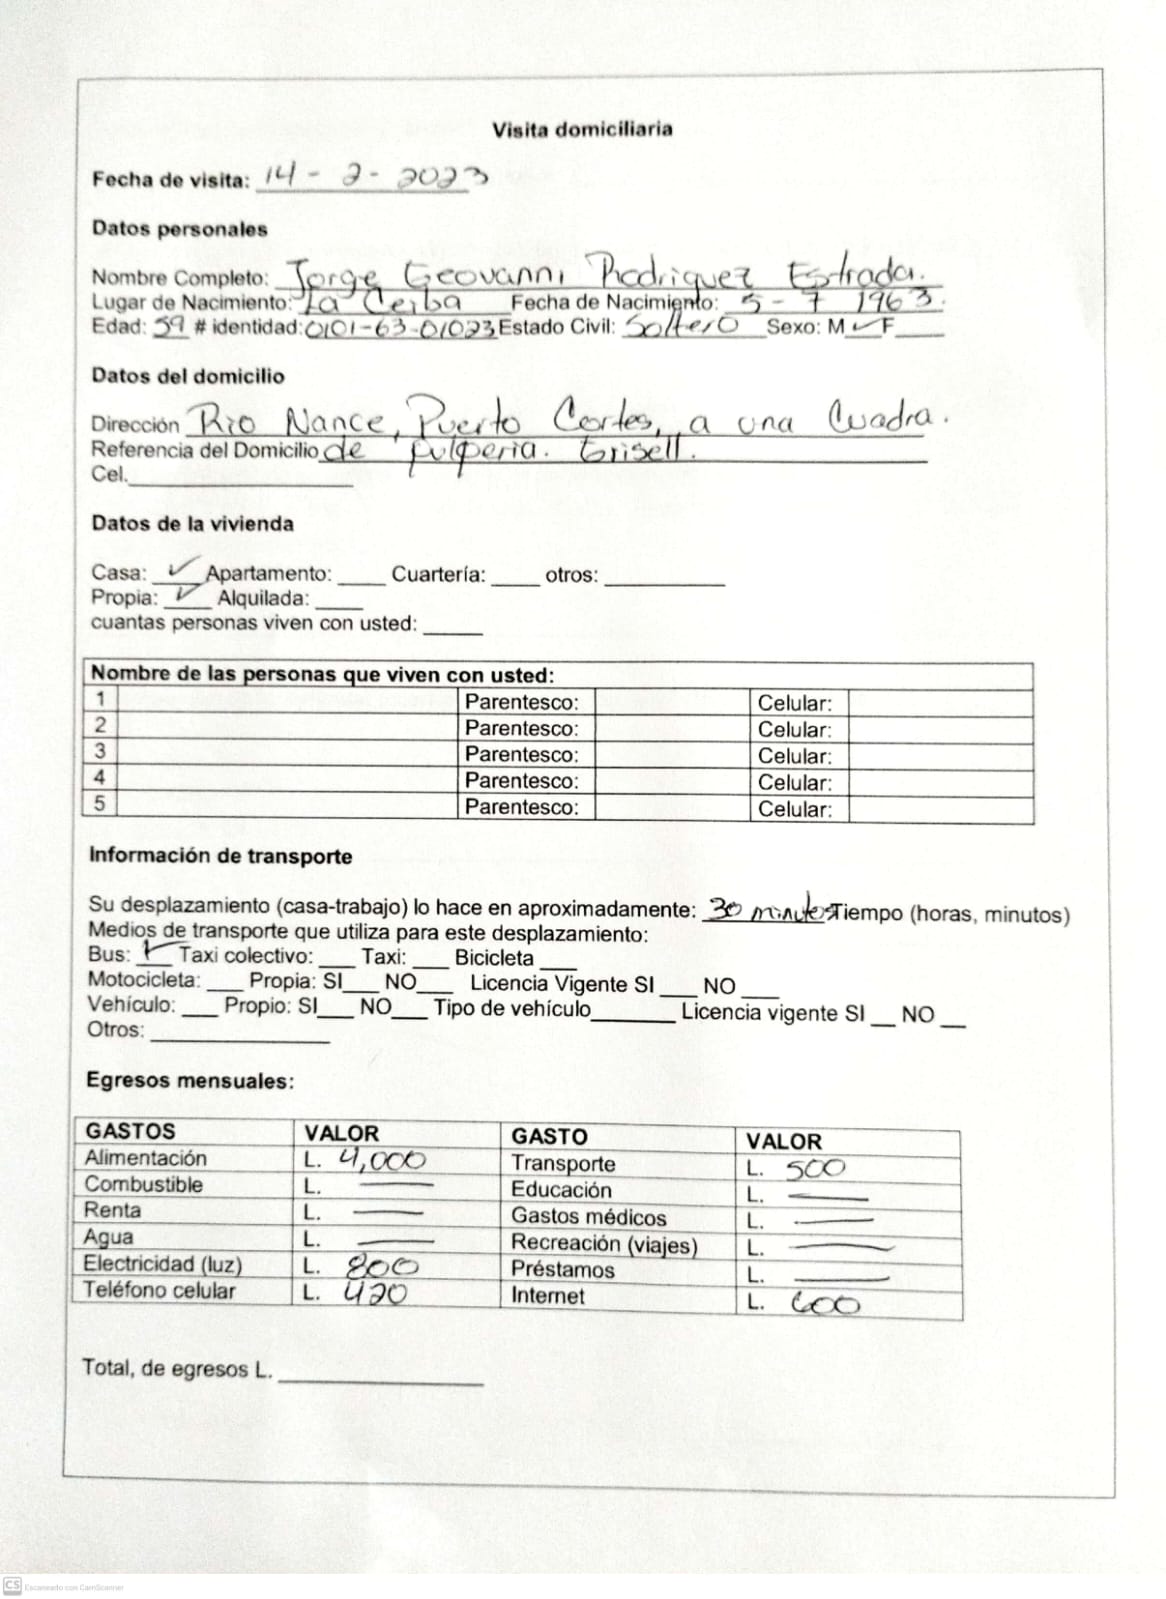 Visita domiciliaria
Fecha de visita: 14 - 2 - 2023
Datos personales
Nombre Completo: Jorge Geovanni Rodriguez Estrada.
Lugar de Nacimiento: La Ceiba Fecha de Nacimiento: 5 - 7 1963.
Edad: 59 # identidad: 0101-63-01023 Estado Civil: Soltero Sexo: M ✓ F____
Datos del domicilio
Dirección Rio Nance, Puerto Cortes, a una Cuadra.
Referencia del Domicilio de pulperia. Grisell.
Cel.____
Datos de la vivienda
Casa: ✓ Apartamento: ____ Cuartería: ____ otros: ____
Propia: ✓ Alquilada: ____
cuantas personas viven con usted: ____
Nombre de las personas que viven con usted:
1 Parentesco: Celular:
2 Parentesco: Celular:
3 Parentesco: Celular:
4 Parentesco: Celular:
5 Parentesco: Celular:
Información de transporte
Su desplazamiento (casa-trabajo) lo hace en aproximadamente: 30 minutos Tiempo (horas, minutos)
Medios de transporte que utiliza para este desplazamiento:
Bus: ✓ Taxi colectivo: ___ Taxi: ___ Bicicleta ___
Motocicleta: ___ Propia: SI___ NO___ Licencia Vigente SI ___ NO ___
Vehículo: ___ Propio: SI___ NO___ Tipo de vehículo______ Licencia vigente SI __ NO __
Otros: ____
Egresos mensuales:
GASTOS VALOR GASTO VALOR
Alimentación L. 4,000 Transporte L. 500
Combustible L. — Educación L. —
Renta L. — Gastos médicos L. —
Agua L. — Recreación (viajes) L. —
Electricidad (luz) L. 800 Préstamos L. —
Teléfono celular L. 420 Internet L. 600
Total, de egresos L. ____
CS Escaneado con CamScanner